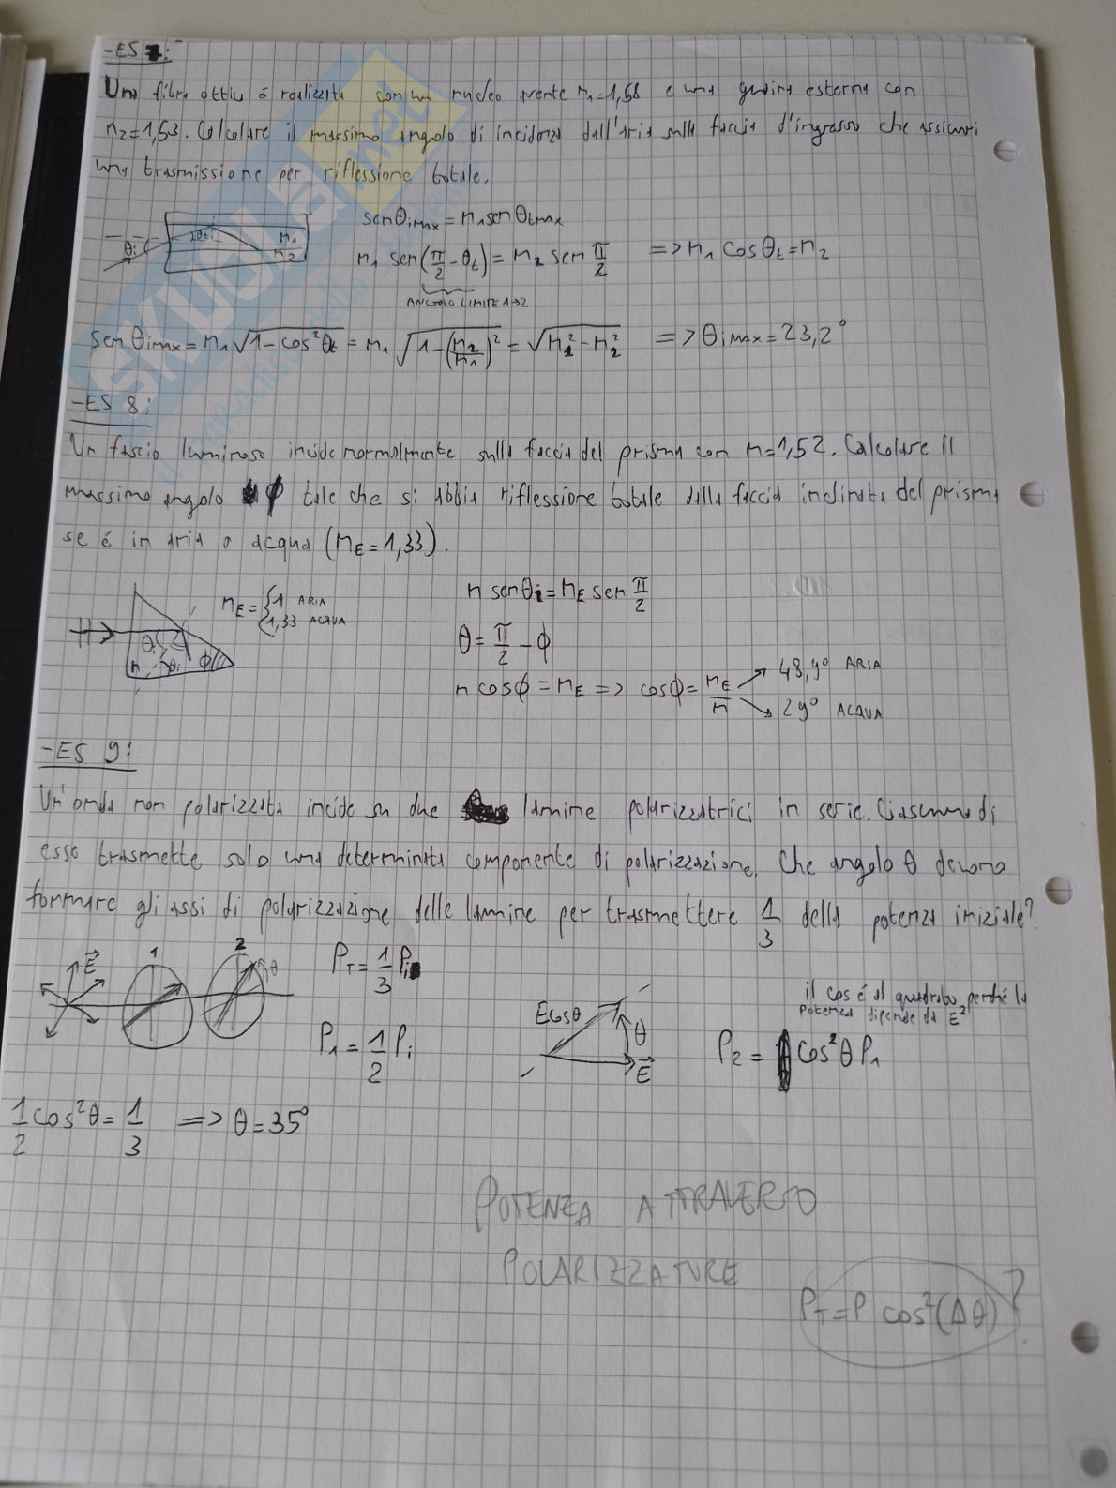 -ES 7:
Una fibra ottica é realizzata con un nucleo avente n₁=1,58 e una guaina esterna con
n₂=1,53. Calcolare il massimo angolo di incidenza dall'aria sulla faccia d'ingresso che assicuri
una trasmissione per riflessione totale.
senθimax = n₁senθtmax
θi n₁ n₂
n₁ sen(π/2 - θt) = n₂ sen π/2 => n₁ cosθt = n₂
ANGOLO LIMITE 1→2
senθimax = n₁√(1-cos²θt) = n₁√(1-(n₂/n₁)²) = √(n₁²-n₂²) => θimax = 23,2°
-ES 8:
Un fascio luminoso incide normalmente sulla faccia del prisma con n=1,52. Calcolare il
massimo angolo φ tale che si abbia riflessione totale dalla faccia inclinata del prisma
se é in aria o acqua (nE=1,33).
nE = {1 ARIA
1,33 ACQUA
n senθi = nE sen π/2
θi θi φ n
θ = π/2 - φ
n cosφ = nE => cosφ = nE/n
48,9° ARIA
29° ACQUA
-ES 9:
Un'onda non polarizzata incide su due lamine polarizzatrici in serie. Ciascuna di
esse trasmette solo una determinata componente di polarizzazione. Che angolo θ devono
formare gli assi di polarizzazione delle lamine per trasmettere 1/3 della potenza iniziale?
E 1 2 θ
PT = 1/3 Pi
P₁ = 1/2 Pi
Ecosθ θ E
il cos é al quadrato perché la
potenza dipende da E²
P₂ = cos²θ P₁
1/2 cos²θ = 1/3 => θ = 35°
POTENZA ATTRAVERSO
POLARIZZATORE
PT = P cos²(Δθ) ?